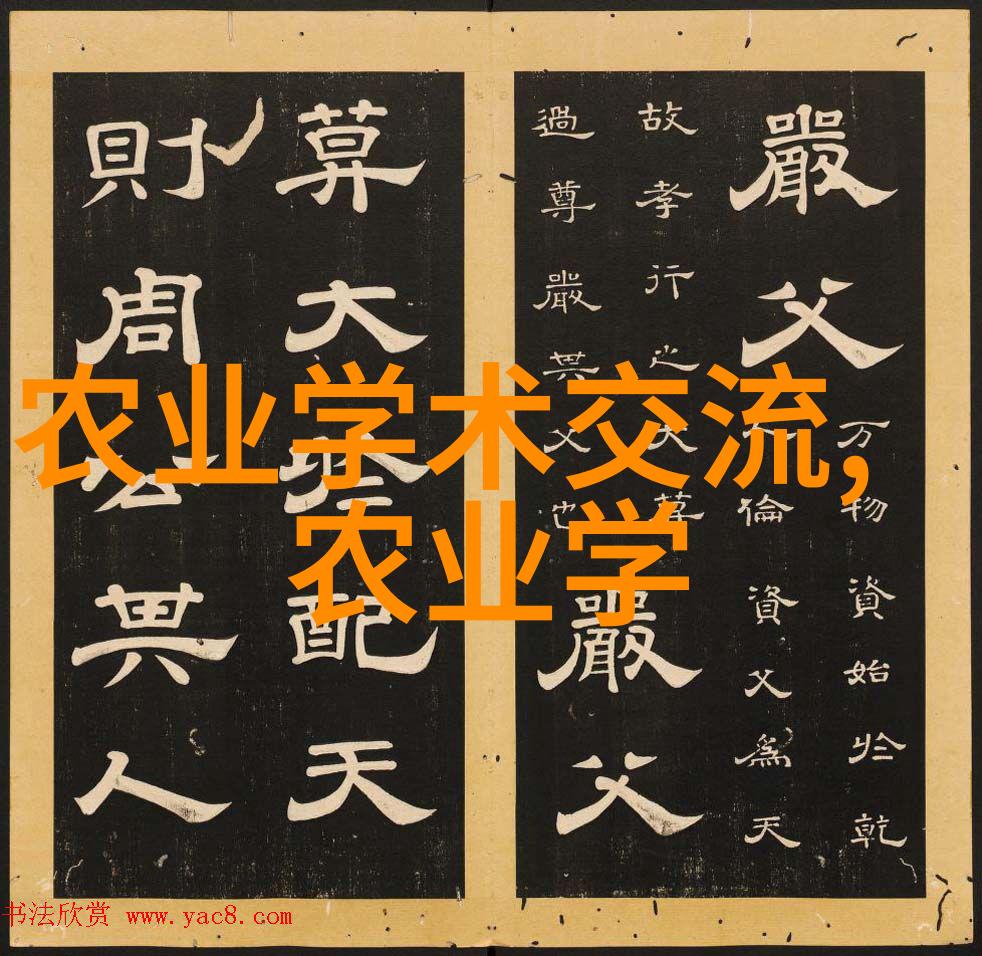 嚴父
万物資始於乾
倫資父為天
故孝行之大莫
過尊嚴其父也
嚴父
莫大於配天
則周公其人
农业学术交流,
农业学
书法欣赏 www.yac8.com